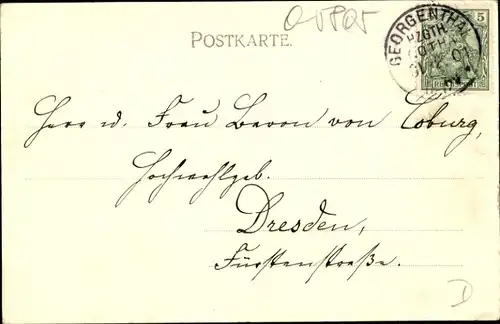 POSTKARTE.
GEORGENTHAL
HZGTH.
GOTHA
5
Herr u. Frau Baron von Coburg,
Hochwohlgeb.
Dresden,
Fürstenstraße.
D